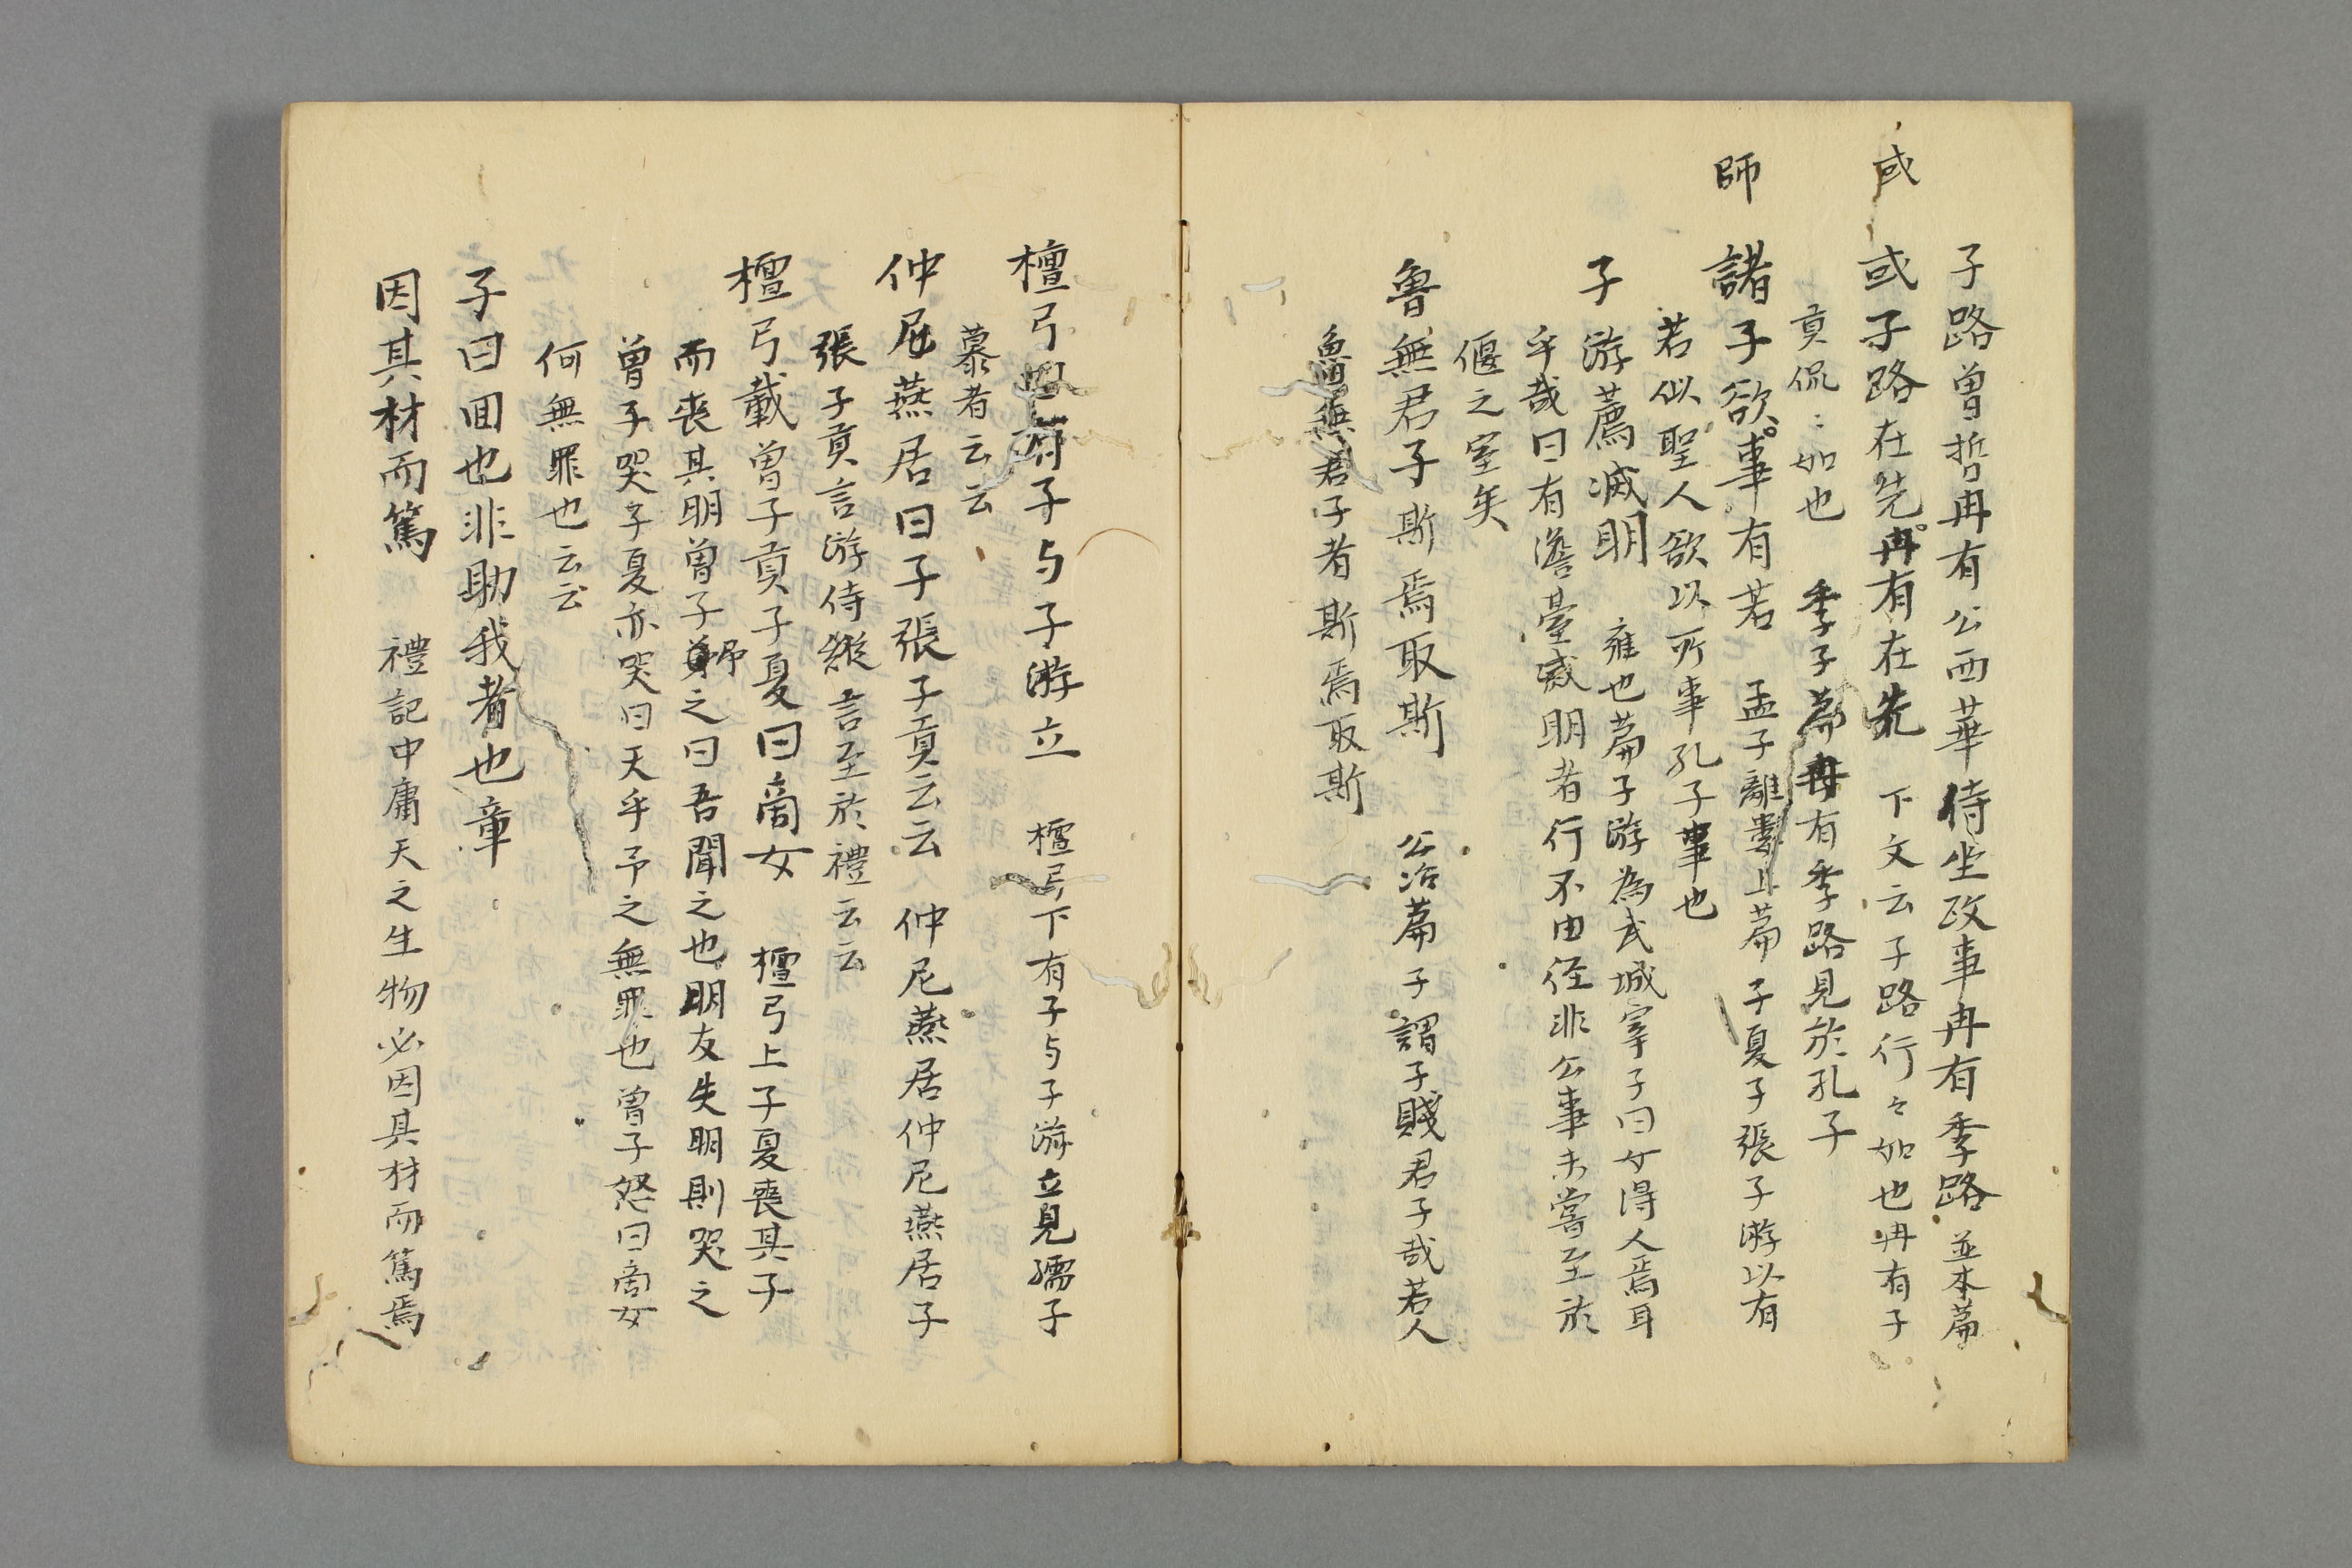 子路曽哲冉有公西華侍坐政事冉有季路並本篇
或
或子路在先冉有在先 下文云子路行々如也冉有子
貢侃〻如也 季子篇冉有季路見於孔子
師
諸子欲事有若 孟子離婁上篇子夏子張子游以有
若似聖人欲以所事孔子事也
子游薦滅明 雍也篇子游為武城宰子曰女得人焉耳
乎哉曰有澹臺威明者行不由径非公事未嘗至於
偃之室矣
魯無君子斯焉取斯 公冶篇子謂子賤君子哉若人
魯無君子者斯焉取斯
檀弓 有子与子游立 檀弓下有子与子游立見孺子
慕者云云
仲尼燕居曰子張子貢云云 仲尼燕居仲尼燕居子
張子貢言游侍縱言至於禮云云
檀弓載曽子責子夏曰啇女 檀弓上子夏喪其子
而喪其明曽子弔之曰吾聞之也朋友失明則哭之
曽子哭子夏亦哭曰天乎予之無罪也曽子怒曰啇女
何無罪也云云
子曰囬也非助我者也章
因其材而篤 禮記中庸天之生物必因其材而篤焉